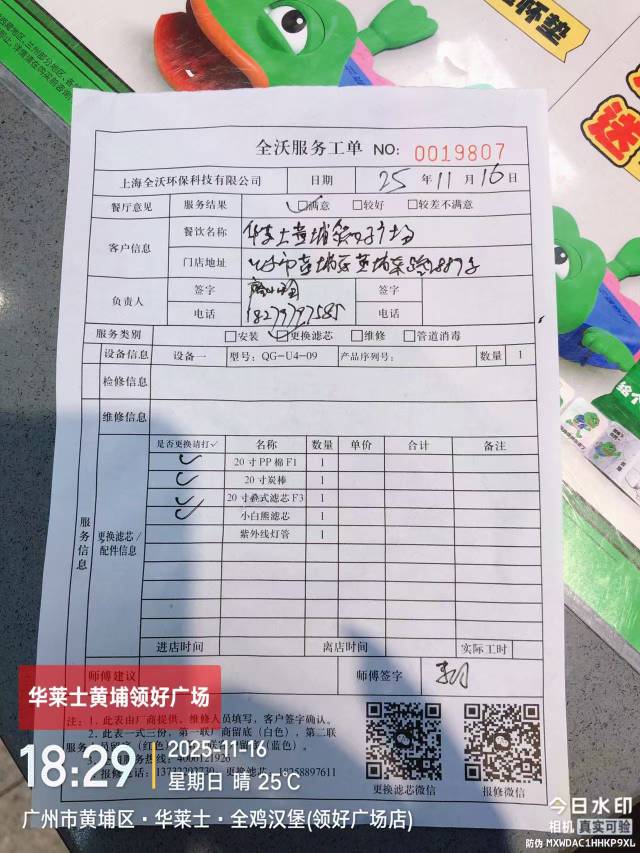 全沃服务工单 NO: 0019807
上海全沃环保科技有限公司 日期 25 年 11 月 16 日
餐厅意见 服务结果 ☑满意 □较好 □较差不满意
客户信息 餐饮名称 华莱士黄埔领好广场
门店地址
负责人 签字 签字
电话 18279797585 电话
服务类别 □安装 ☑更换滤芯 □维修 □管道消毒
设备信息 设备一 型号: QG-U4-09 产品序列号: 数量 1
检修信息
维修信息
服务信息
更换滤芯/配件信息
是否更换请打✓ 名称 数量 单价 合计 备注
✓ 20寸PP棉F1 1
✓ 20寸炭棒 1
✓ 20寸叠式滤芯F3 1
✓ 小白熊滤芯 1
紫外线灯管 1
进店时间 离店时间 实际工时
师傅建议 师傅签字
注: 1. 此表由厂商提供, 维修人员填写, 客户签字确认。
2. 此表一式三份, 第一联厂商留底(白色), 第二联
(红色) (蓝色)。
热线: 4006121926
更换滤芯: 18258897611
更换滤芯微信 报修微信
华莱士黄埔领好广场
18:29
2025-11-16
星期日 晴 25℃
广州市黄埔区·华莱士·全鸡汉堡(领好广场店)
今日水印
相机 真实可验
防伪 MXWDAC1HHKP9XL
杯垫
送